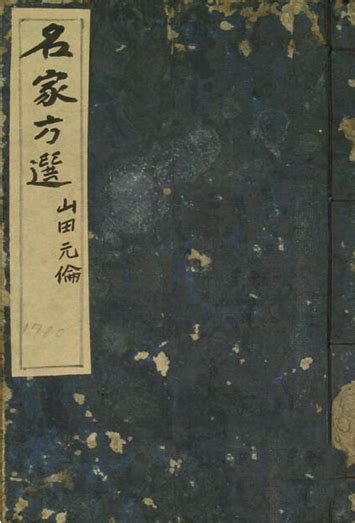 名家方選
山田元倫
1780